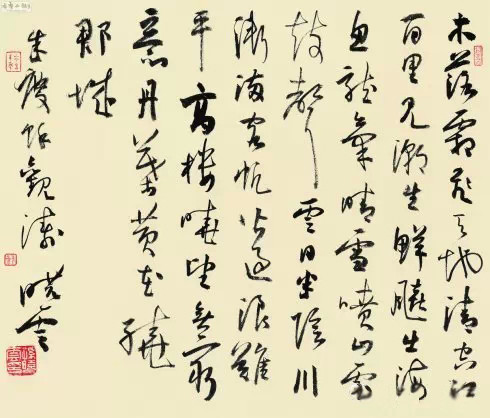 木落霜飛天地清空江
百里見潮生鮮飈出海
魚龍氣晴雪噴山雷
鼓聲雲日半陰川
漸滿客帆皆過浪難
平高樓曉望無窮
意丹葉黄花繞
郡城
朱慶餘觀濤